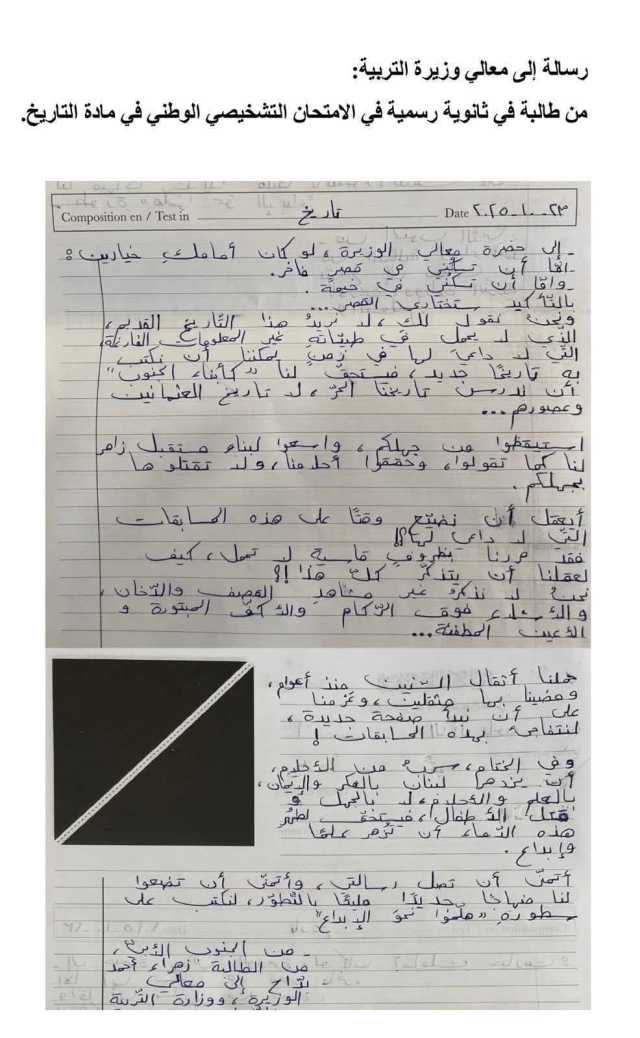 رسالة إلى معالي وزيرة التربية:
من طالبة في ثانوية رسمية في الامتحان التشخيصي الوطني في مادة التاريخ.
Composition en / Test in تاريخ Date ٢٣-١٠-٢٠٢٥
- إلى حضرة معالي الوزيرة، لو كان أمامك خيارين:
- إمّا أن تسكني في قصرٍ فاخر.
- وإمّا أن تسكني في خيمة.
بالتّأكيد ستختاري القصر...
ونحن نقول لك، لا نريد هذا التّاريخ القديم،
الّذي لا يحمل في طيّاته غير المعلومات الفارغة،
الّتي لا داعي لها في زمنٍ يمكننا أن نكتب
به تاريخًا جديد، فيستحقّ لنا "كأبناء الجنوب"
أن ندرس تاريخنا الحرّ، لا تاريخ العثمانيين
وعصورهم...
استيقظوا من جهلكم، واسعوا لبناء مستقبل زاهر
لنا كما تقولوا، وحقّقوا أحلامنا، ولا تقتلوها
بجهلكم.
أيعقل أن نضيّع وقتًا على هذه المسابقات
الّتي لا داعي لها؟!
فقد مررنا بظروفٍ قاسية لا تحمل، كيف
لعقلنا أن يتذكّر كلّ هذا!؟
نحن لا نذكر غير مشاهد القصف والدّخان،
والأشلاء فوق الرّكام والأكفّ المبتورة و
الأعين المطفئة...
حملنا أثقال السّنين منذ أعوام،
ومضينا بها مثقلين، وعزمنا
على أن نبدأ صفحة جديدة،
لنتفاجئ بهذه المسابقات!
وفي الختام، من الأحلام،
أن يزدهر لبنان بالفكر والإيمان،
بالعلم والأحلام، لا بالجهل و
قتل الأطفال، فيستحق لطهر
هذه الدّماء أن تُزهر علمًا
وإبداع.
أتمنّى أن تصل رسالتي، وأتمنّى أن تضعوا
لنا منهاجًا جديدًا مليئًا بالتّطوّر، لنكتب على
سطوره "هلمّوا نحو الإبداع"
- من الجنوب الأبيّ،
من الطالبة "زهراء أحمد
بدّاح" إلى معالي
الوزيرة، ووزارة التّربية